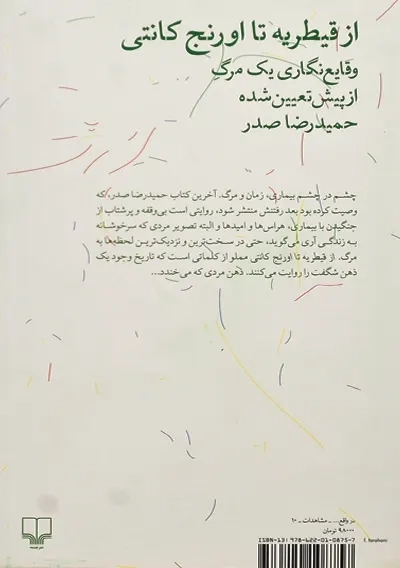 از قیطریه تا اورنج کانتی
وقایع‌نگاری یک مرگِ
از پیش تعیین شده
حمیدرضا صدر
چشم در چشم بیماری، زمان و مرگ. آخرین کتاب حمیدرضا صدر، که
وصیت کرده بود بعد رفتنش منتشر شود، روایتی است بی‌وقفه و پرشتاب از
جنگیدن با بیماری، هراس‌ها و امیدها و البته تصویر مردی که سرخوشانه
به زندگی آری می‌گوید، حتی در سخت‌ترین و نزدیک‌ترین لحظه‌ها به
مرگ. از قیطریه تا اورنج کانتی مملو از کلماتی است که تاریخ وجود یک
ذهن شگفت را روایت می‌کنند. ذهن مردی که می‌خندد...
در واقع... ـ مشاهدات ـ ۱۰
۹۸۰۰۰ تومان
ISBN-13: 978-622-01-0875-7
f. farahani
نشر چشمه